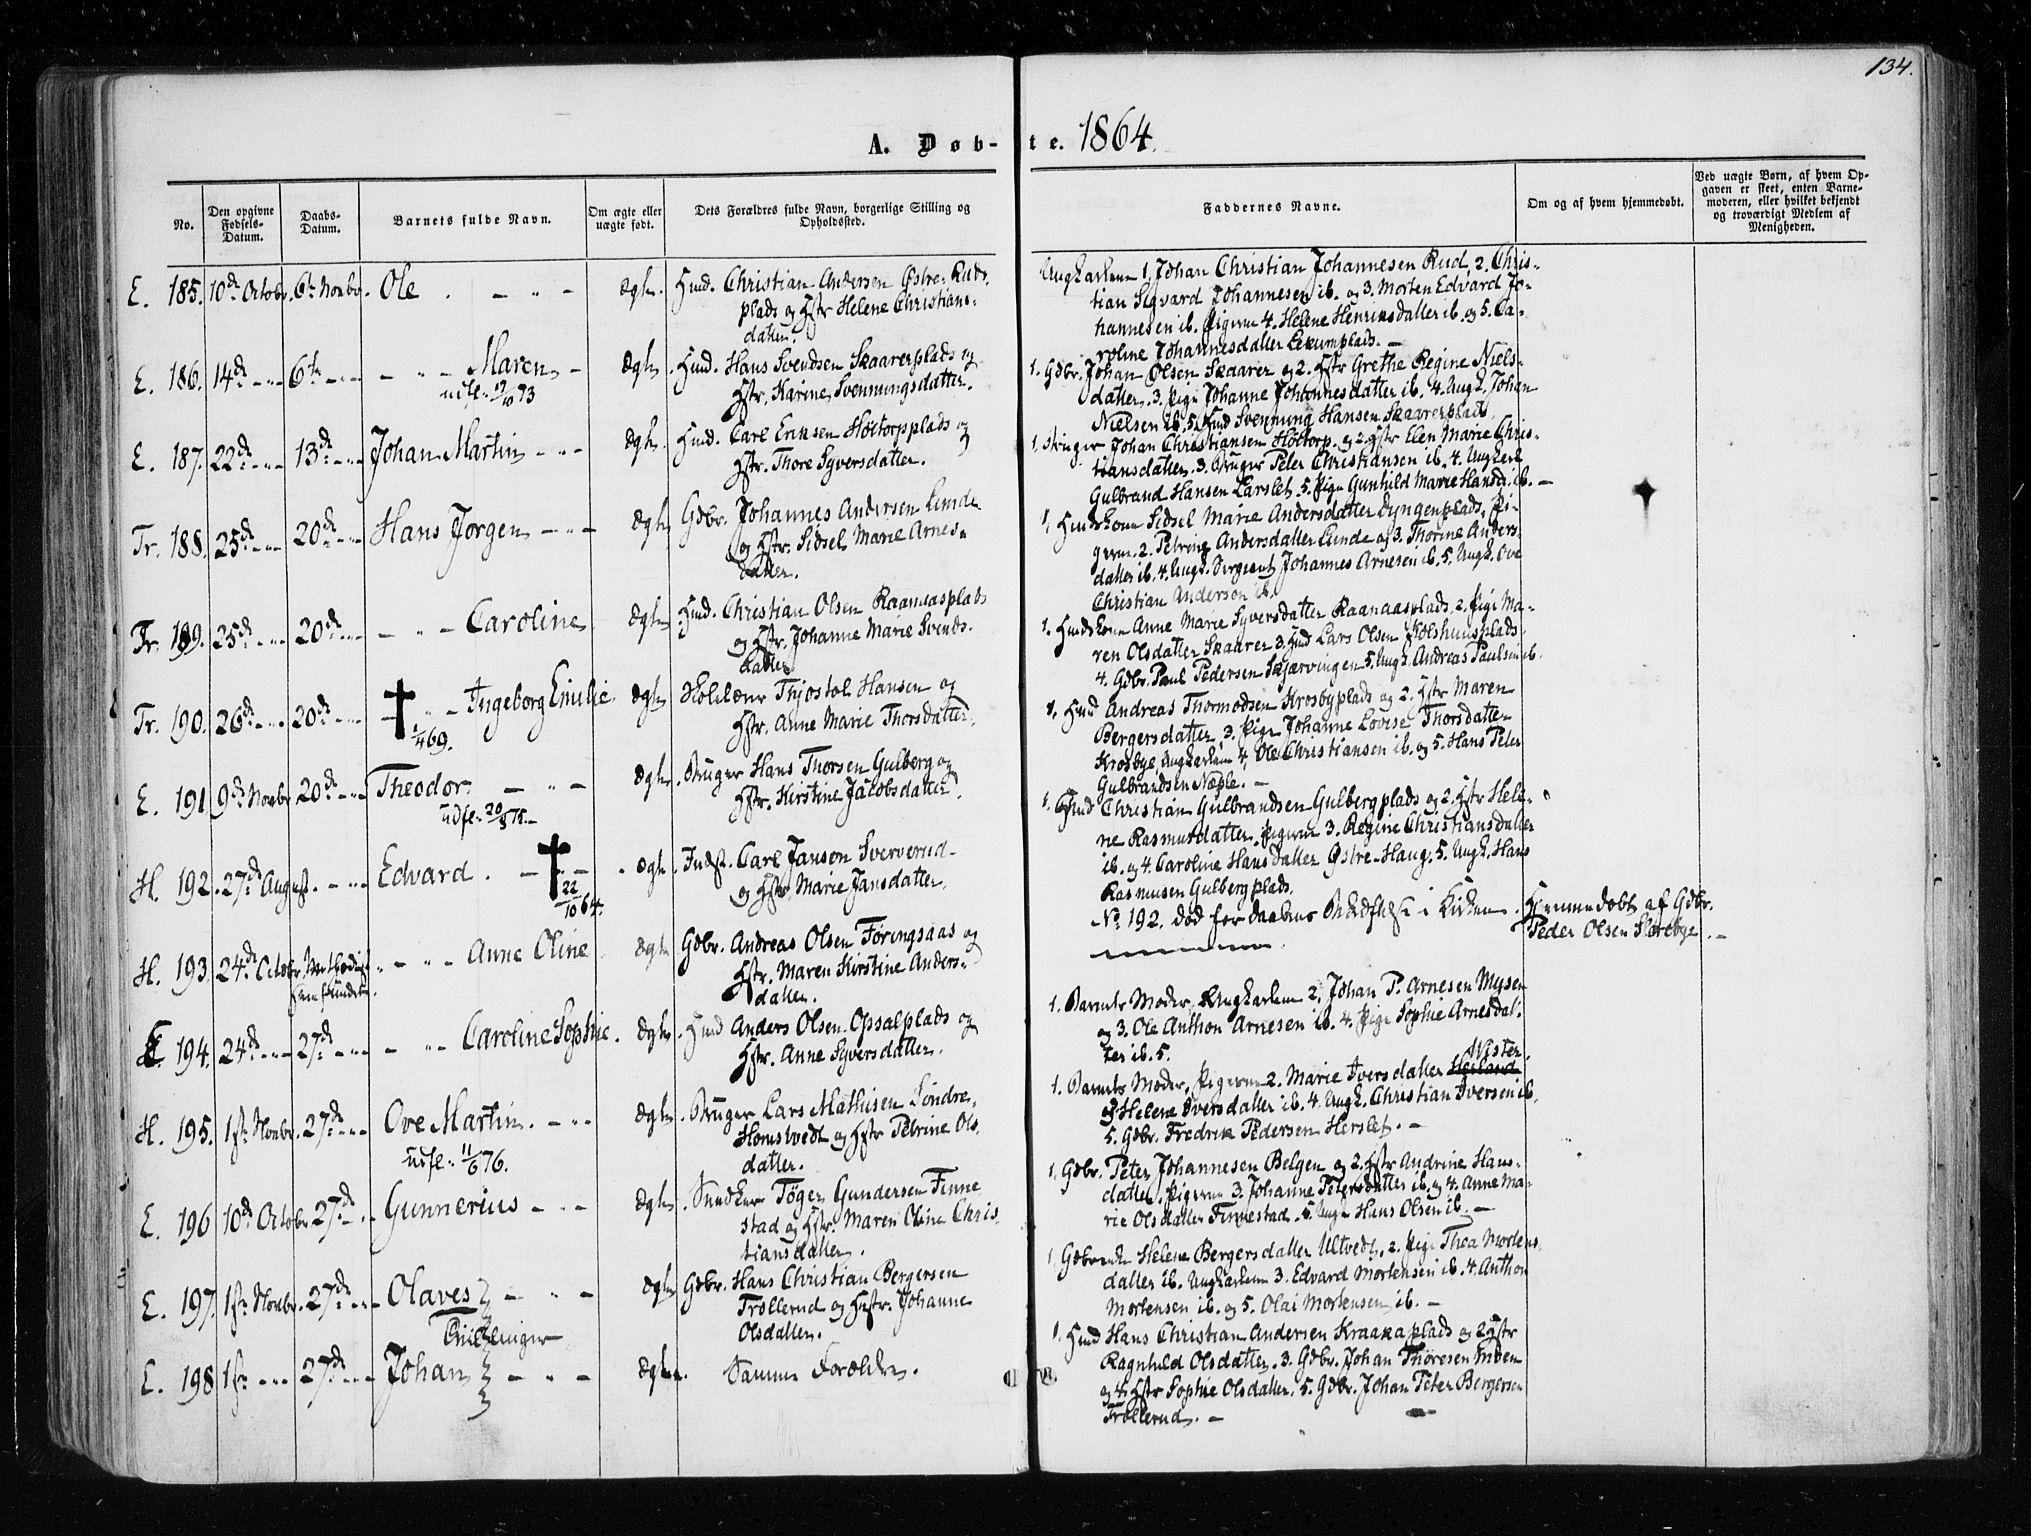 134.
A. Døb- te. 1864.
No.
Den opgivne Fødsels-Datum.
Daabs-Datum.
Barnets fulde Navn.
Om ægte eller uægte født.
Dets Forældres fulde Navn, borgerlige Stilling og Opholdssted.
Faddernes Navne.
Om og af hvem hjemmedøbt.
Ved uægte Børn, af hvem Op-
gaven er skeet, enten Barne-
moderen, eller hvilket bekjendt
og troværdigt Medlem af
Menigheden.
E. 185. 10de Octobr. 6te Novbr. Ole Ægte. Hmd. Christian Andersen Østre-Ruds-
plads og Hstr Helene Christians-
datter.
Ungkarlene 1, Johan Christian Johannesen Rud, 2. Chris-
tian Sigvard Johannesen ib. og 3. Morten Edvard Jo-
hannesen ib. Pigerne 4. Helene Henriksdatter ib. og 5. Ca-
roline Johannesdatter Lekumplads. —
E. 186. 14de 6te Maren Ægte. Hmd. Hans Svendsen Skaarerplads og
udfl. 12/10 73
Hstr. Karine Svenningsdatter.
1. Gdbr. Johan Olsen Skaarer og 2. Hstr Grethe Regine Niels-
datter. 3. Pige Johanne Johannesdatter ib. 4. Ungk. Johan
Nielsen ib. 5. Hmd Svenning Hansen Skaarerplads.
E. 187. 22de 13de Johan Martin Ægte. Hmd. Carl Eriksen Høitorpplads og
Hstr. Thore Syversdatter.
1. Bruger Johan Christiansen Høitorp. og 2. Hstr Elen Marie Chris-
tiansdatter. 3. Bruger Peter Christiansen ib. 4. Ungkarl
Gulbrand Hansen Larslet. 5. Pige Gunhild Marie Hansd. ib. —
Tr. 188. 25de 20de Hans Jørgen Ægte Gdbr. Johannes Andersen Lunde
og Hstr. Sidsel Marie Arnes-
datter.
1. Hmdskone Sidsel Marie Andersdatter Dyngenplads, Pi-
gerne 2. Petrine Andersdatter Lunde og 3. Thorine Anders-
datter ib. 4. Ungk. Sergeant Johannes Arnesen ib. 5. Ungk. Ove
Christian Andersen ib.
Tr. 189. 25de 20de Caroline Ægte Hmd. Christian Olsen Raanaasplads
og Hstr. Johanne Marie Svends-
datter
1. Hmdskone Anne Marie Syversdatter Raanaasplads, 2. Pige Ma-
ren Olsdatter Skaarer 3. Hmd Lars Olsen Kolshuusplads
4. Gdbr. Paul Pedersen Skjærvingen 5. Ungk. Andreas Paulsen ib.
Tr. 190. 26de 20de Ingeborg Emilie Ægte Skolelærer Thjostol Hansen og
1/4 69.
Hstr. Anne Marie Thorsdatter.
1. Hmd Andreas Thormodsen Krosbyplads og 2. Hstr Maren
Bergersdatter, 3. Pige Johanne Lovise Thorsdatter
Krosbye, Ungkarlene 4, Ole Christiansen ib. og 5. Hans Peter
Gulbrandsen Næple. —
E. 191 9de Novbr. 20de Theodor. Ægte. Bruger Hans Thorsen Gulberg og
Hstr. Kirstine Jacobsdatter.
1. Hmd Christian Gulbrandsen Gulbergplads og 2. Hstr Hele-
ne Rasmusdatter. Pigerne 3. Regine Christiansdatter
ib. og 4. Caroline Hansdatter Østre-Haug, 5. Ungk. Hans
Rasmusen Gulbergplads.
H. 192. 27de August. Edvard Ægte. Indst. Carl Janson Sververud
22/10 64.
og Hstr Marie Jansdatter.
No 192. død før Daabens Stadfæstelse i Kirken. Hjemmedøbt af Gdbr.
Peder Olsen Slorebye. —
H. 193. 24de Octobr. Methodist Anne Oline Ægte Gdbr. Andreas Olsen Føringsaas og
Samfundet.
Hstr. Maren Kirstine Anders-
datter.
E. 194. 24de 27de Caroline Sophie Ægte. Hmd Anders Olsen Opsalplads og
Hstr. Anne Syversdatter.
1. Barnets Moder, Ungkarlene 2. Johan P. Arnesen Mysen
og 3. Ole Anthon Arnesen ib. 4. Pige Sophie Arnesdat-
ter ib. 5.
H. 195. 1ste Novbr. 27de Ove Martin. Ægte. Bruger Lars Mathisen Søndre-
udfl. 11/6 76.
Homstvedt og Hstr Petrine Ols-
datter.
Wister.
1. Barnets Moder, Pigerne 2. Marie Iversdatter Herland
og Helene Iversdatter ib. 4. Ungk. Christian Iversen ib.
5. Gdbr. Fredrik Pedersen Herslet. —
E. 196 10de Octobr 27de Gunnerius Ægte. Snedker Tøger Gundersen Finne
stad og Hstr. Maren Oline Chris-
tiansdatter.
1. Gdbr. Peter Johannesen Belgen og 2. Hstr Andrine Hans-
datter. Pigerne 3. Johanne Petersdatter ib. og 4. Anne Ma-
rie Olsdatter Finnestad. 5. Ungk Hans Olsen ib. —
E. 197. 1ste Novbr. 27de Olaves Ægte Gdbr. Hans Christian Bergersen
Tvillinger
Trøllerud og Hstr. Johanne
Olsdatter.
1. Gdbrenke Helene Bergersdatter Ultvedt, 2. Pige Thea Mortens-
datter ib. Ungkarlene 3. Edvard Mortensen ib. 4. Anthon
Mortensen ib. og 5. Olai Mortensen ib. —
E. 198 1ste 27de Johan Ægte. Samme Forældre.
1. Hmd Hans Christian Andersen Kraakaplads og 2 Hstr
Ragnhild Olsdatter. 3. Gdbr. Johan Thoresen Moen
og 4. Hstr Sophie Olsdatter. 5. Gdbr. Johan Peter Bergersen
Trøllerud. —